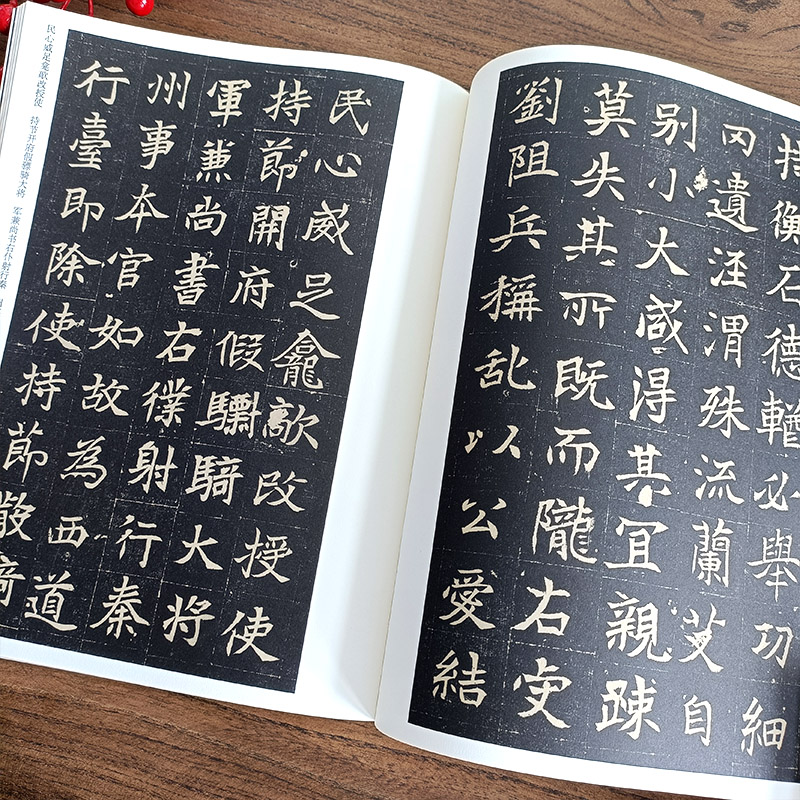 持衡石德必舉功細
罔遺涇渭殊流蘭艾自
别小大咸得其宜親疎
莫失其所既而隴右
劉阻兵稱乱以公愛結
民心威足龕敵改授使
持節開府假驃騎大將
軍兼尚書右僕射行秦
州事本官如故為西道
行臺即除使持節散騎
民心威足龛敌改授使 持节开府假骠骑大将 军兼尚书右仆射行秦